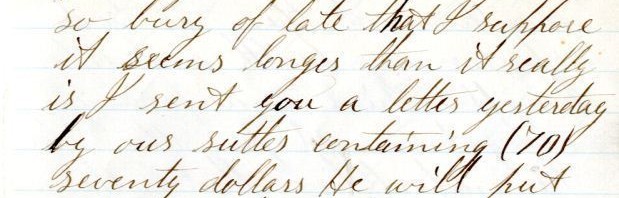 so busy of late that I suppose
it seems longer than it really
is I sent you a letter yesterday
by our sutler containing (70)
seventy dollars He will put